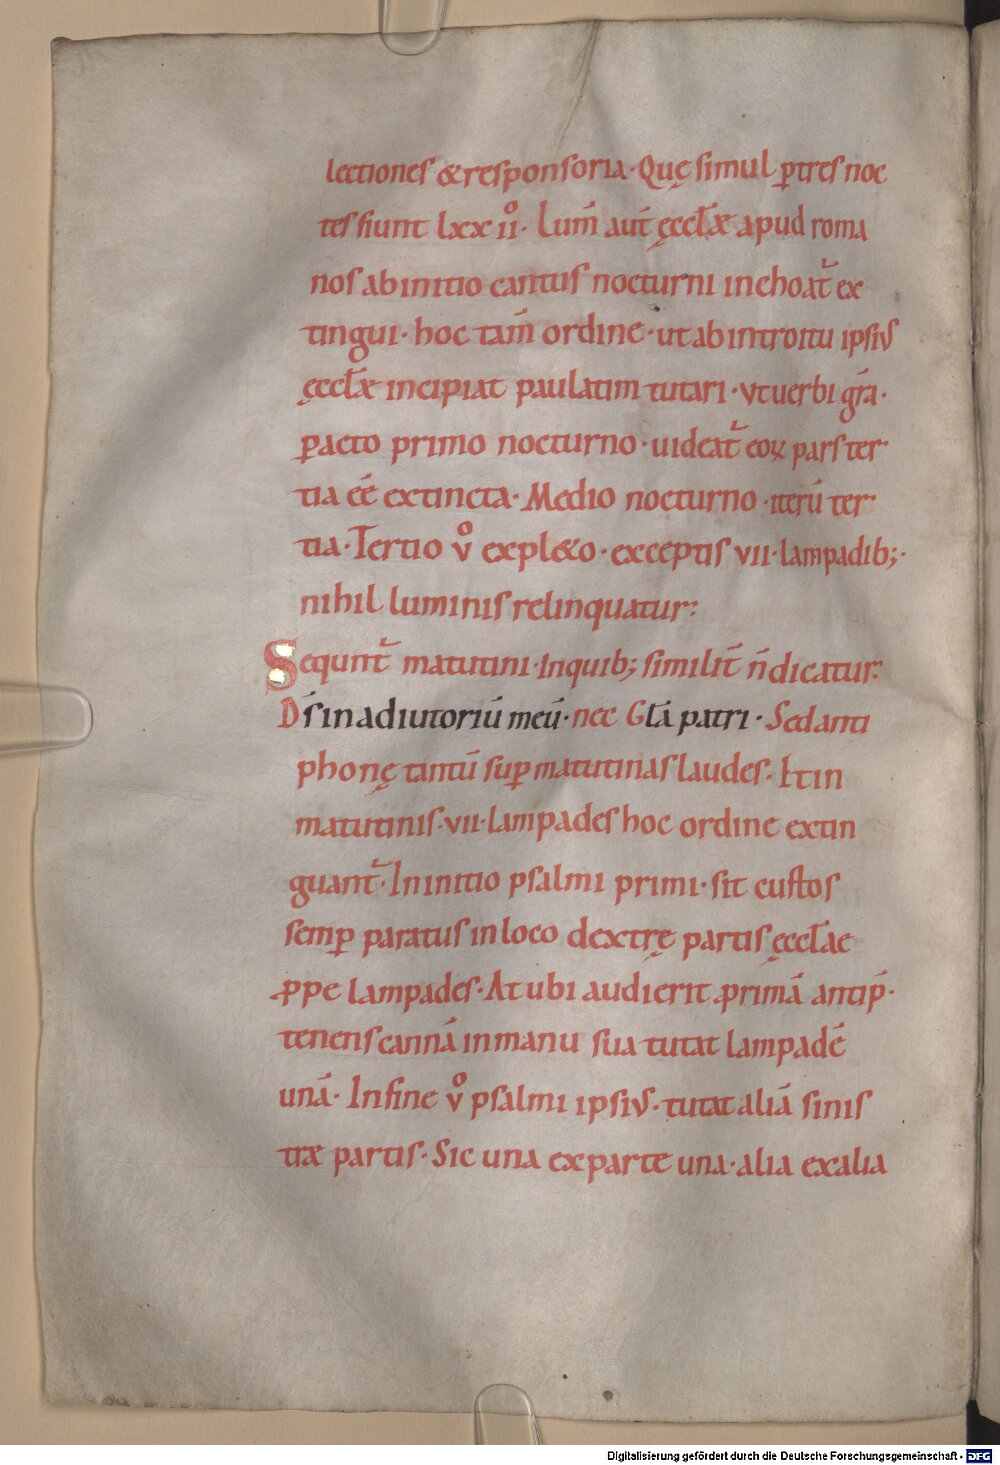 lectiones & responsoria · Quę simul ꝑ tres noc
tes fiunt lxx ii° · Lum̄ aut̄ ęccl̄æ apud roma
nos ab initio cantus nocturni inchoat̄ ex
tingui · hoc tam̄ ordine · ut ab introitu ipsius
ęccl̄æ incipiat paulatim tutari · ut uerbi gr̄a ·
ꝑacto primo nocturno · uideat̄ eoꝝ pars ter
tia eē extincta · Medio nocturno · iterū ter
tia · Tertio v° expl&o · exceptis vii · lampadib; ·
nihil luminis relinquatur :
Sequunt̄ matutini · In quib; similit̄ n̄ dicatur ·
D̄s in adiutoriū meū · nec Gl̄a patri · Sed anti
phonę tantū suꝑ matutinas laudes · Et in
matutinis · vii · lampades hoc ordine extin
guant̄ · In initio psalmi primi · sit custos
semꝑ paratus in loco dextrę partis ęccl̄ae
ꝓpe lampades · At ubi audierit primā antip̄ ·
tenens cannā in manu sua tutat lampadē
unā · In fine v° psalmi ipsius · tutat aliā sinis
træ partis · Sic una ex parte una · alia ex alia
Digitalisierung gefördert durch die Deutsche Forschungsgemeinschaft - DFG